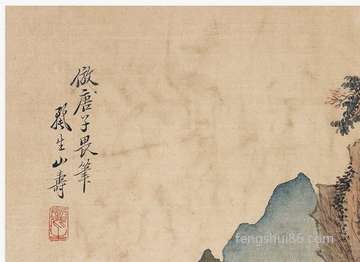 倣唐子畏筆
龔生山壽
fengshui86.com